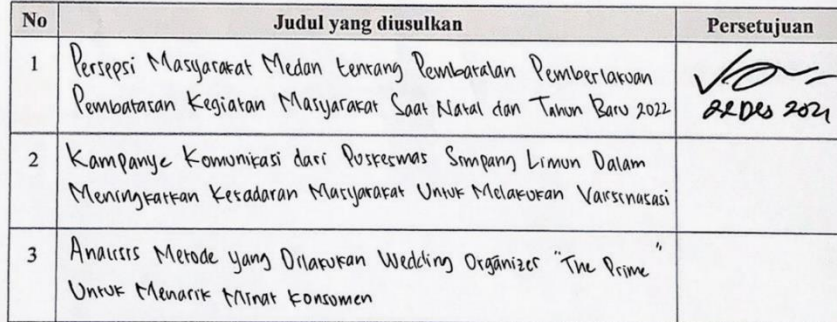 No Judul yang diusulkan Persetujuan
1 Persepsi Masyarakat Medan tentang Pembatalan Pemberlakuan
Pembatasan Kegiatan Masyarakat Saat Natal dan Tahun Baru 2022
22 Des 2021
2 Kampanye Komunikasi dari Puskesmas Simpang Limun Dalam
Meningkatkan Kesadaran Masyarakat Untuk Melakukan Vaksinasasi
3 Analisis Metode yang Dilakukan Wedding Organizer "The Prime"
Untuk Menarik Minat Konsumen